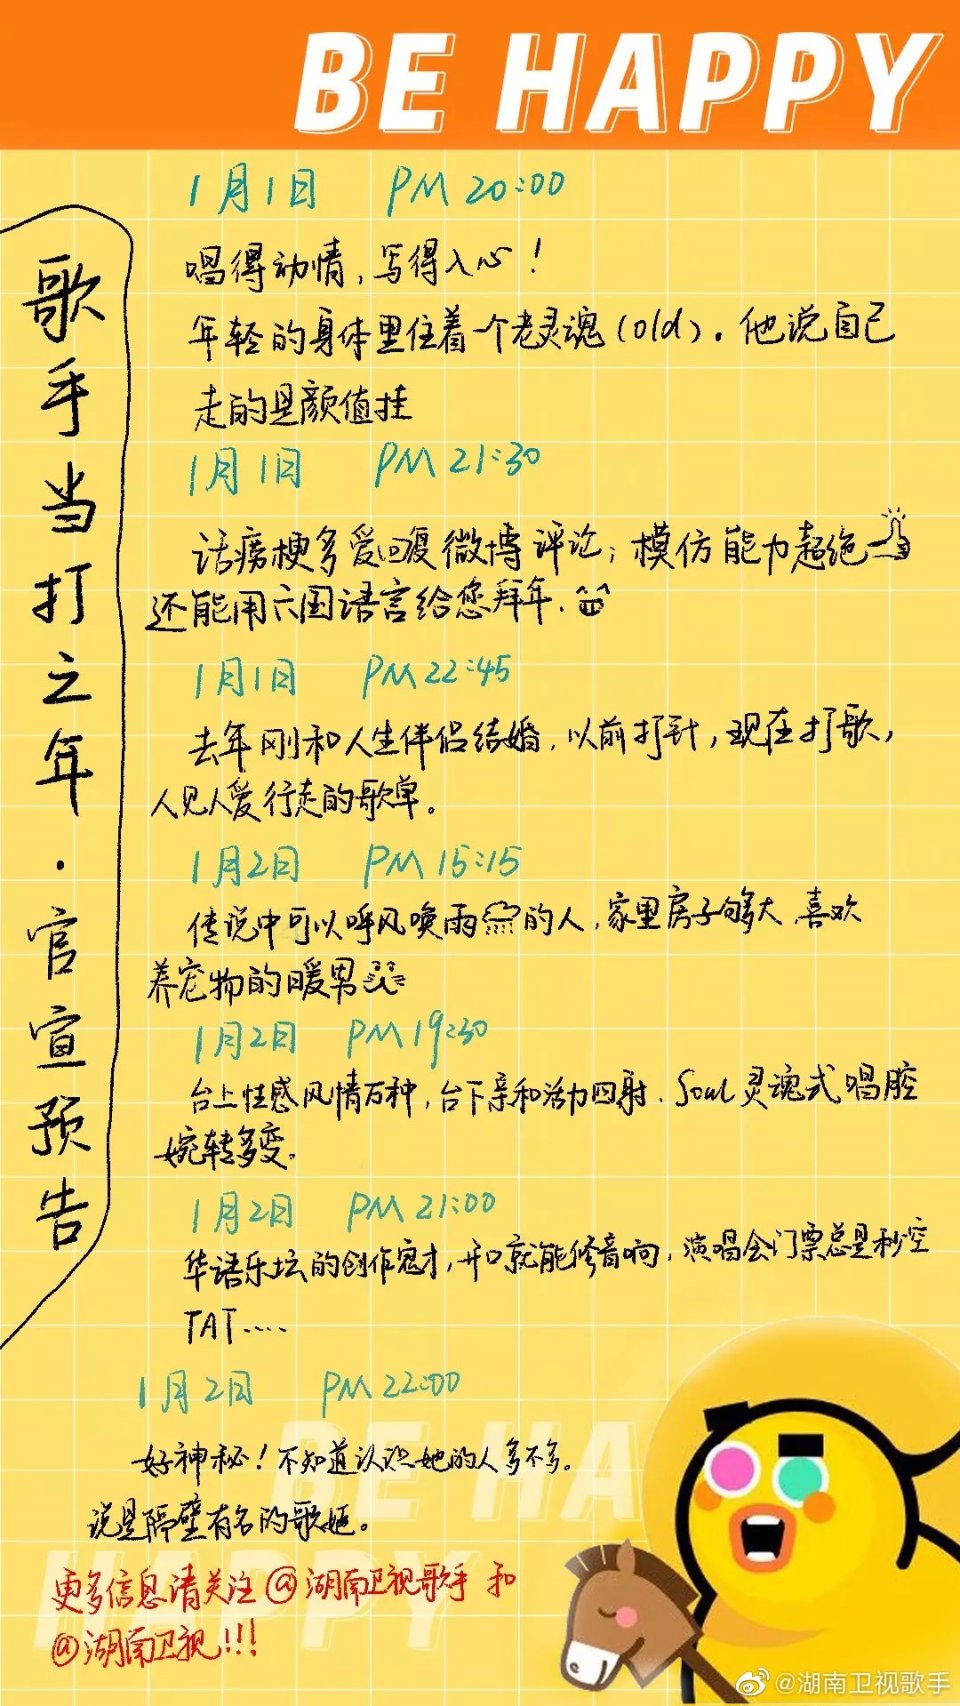 BE HAPPY
歌手当打之年·官宣预告
1月1日 PM 20:00
唱得动情,写得入心!
年轻的身体里住着一个老灵魂(old).他说自己
走的是颜值挂
1月1日 PM 21:30
话痨梗多爱回复微博评论;模仿能力超绝
还能用六国语言给您拜年.
1月1日 PM 22:45
去年刚和人生伴侣结婚.以前打针,现在打歌,
人见人爱行走的歌单。
1月2日 PM 15:15
传说中可以呼风唤雨的人.家里房子够大.喜欢
养宠物的暖男
1月2日 PM 19:30
台上性感风情万种,台下亲和活力四射.Soul灵魂式唱腔
婉转多变.
1月2日 PM 21:00
华语乐坛的创作鬼才,开口就能修音响,演唱会门票总是秒空
TAT....
1月2日 PM 22:00
好神秘!不知道认识她的人多不多。
说是隔壁有名的歌姬。
更多信息请关注@湖南卫视歌手 和
@湖南卫视!!!
BE HA
HAPPY
@湖南卫视歌手